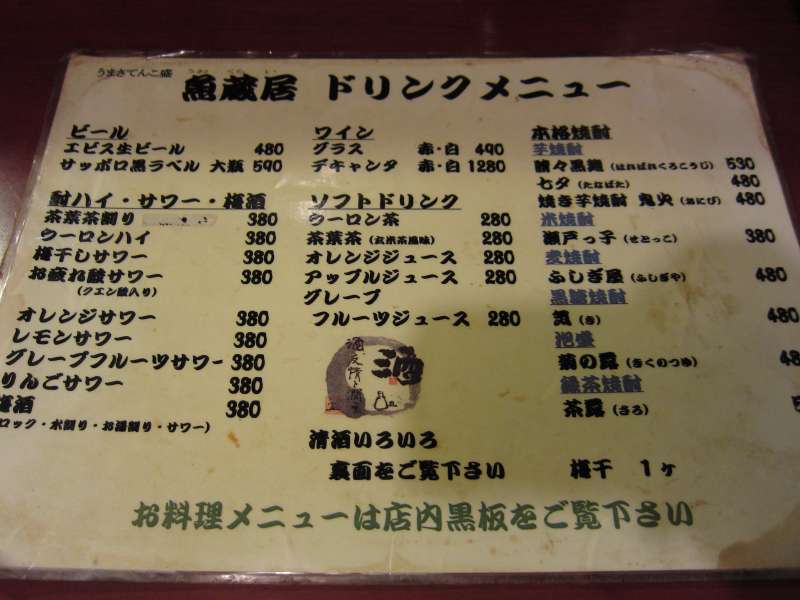 うまさてんこ盛
魚蔵居 ドリンクメニュー
ビール
エビス生ビール 480
サッポロ黒ラベル 大瓶 590
酎ハイ・サワー・梅酒
茶葉茶割り 380
ウーロンハイ 380
梅干しサワー 380
お疲れ酸サワー 380
(クエン酸入り)
オレンジサワー 380
レモンサワー 380
グレープフルーツサワー 380
りんごサワー 380
梅酒 380
ロック・水割り・お湯割り・サワー)
ワイン
グラス 赤・白 490
デキャンタ 赤・白 1280
ソフトドリンク
ウーロン茶 280
茶葉茶 (玄米茶風味) 280
オレンジジュース 280
アップルジュース 280
グレープ
フルーツジュース 280
酒
清酒いろいろ
裏面をご覧下さい
本格焼酎
芋焼酎
晴々黒麹 (はればれくろこうじ) 530
七夕 (たなばた) 480
焼き芋焼酎 鬼火 (おにび) 480
米焼酎
瀬戸っ子 (せとっこ) 380
麦焼酎
ふしぎ屋 (ふしぎや) 480
黒糖焼酎
気 (き) 480
泡盛
菊の露 (きくのつゆ) 48
緑茶焼酎
茶露 (さろ) 5
梅干 1ヶ
お料理メニューは店内黒板をご覧下さい